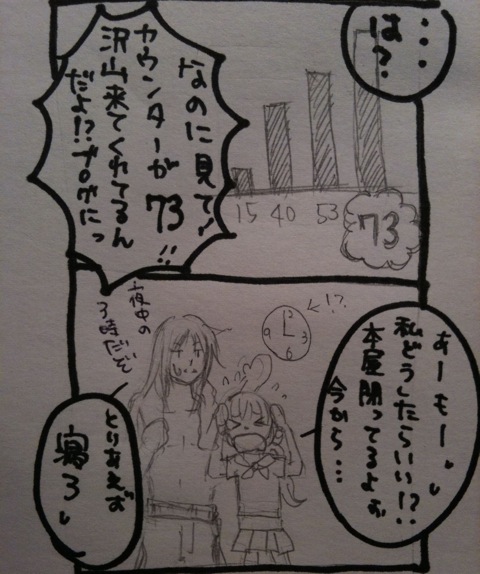 …
は?
なのに見て!
カウンターが73!!
沢山来てくれてるん
だよ!?ブログにっ
15 40 53 73
あーもー
私どうしたらいい!?
本屋閉ってるよぉ
今から…
!?
12
3
6
9
夜中の
3時だぞ
とりあえず
寝ろ